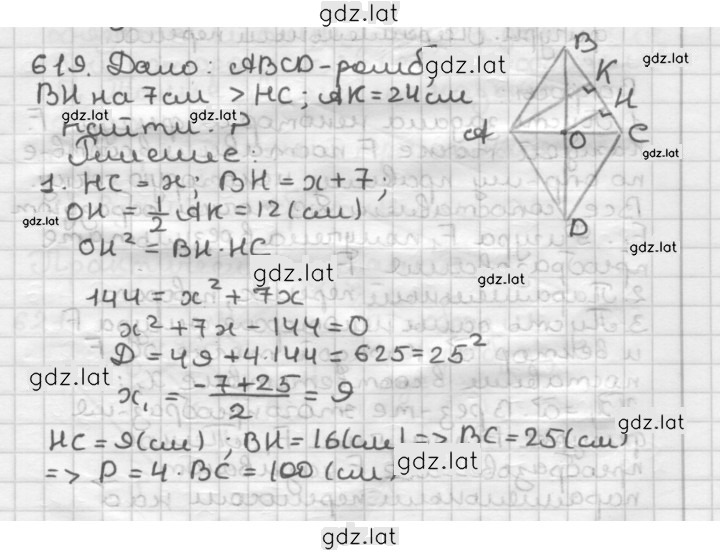 gdz.lat
619. Дано: ABCD-ромб, gdz.lat
BH на 7 см > HC; AK = 24 см
gdz.lat gdz.lat
Найти: P
Решение:
1. HC = x; BH = x + 7;
OH = 1/2 AK = 12 (см)
gdz.lat
OH² = BH · HC
gdz.lat
144 = x² + 7x
x² + 7x - 144 = 0
D = 49 + 4·144 = 625 = 25²
gdz.lat
x₁ = (-7+25)/2 = 9
HC = 9 (см); BH = 16 (см) => BC = 25 (см)
=> P = 4 · BC = 100 (см)
gdz.lat
B
gdz.lat
K
H
A
O
C
gdz.lat
D
gdz.lat
gdz.lat
gdz.lat